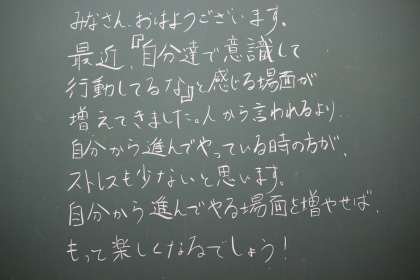 みなさん、おはようございます。
最近、『自分達で意識して
行動してるな』と感じる場面が
増えてきました。人から言われるより、
自分から進んでやっている時の方が、
ストレスも少ないと思います。
自分から進んでやる場面を増やせば、
もって楽しくなるでしょう!